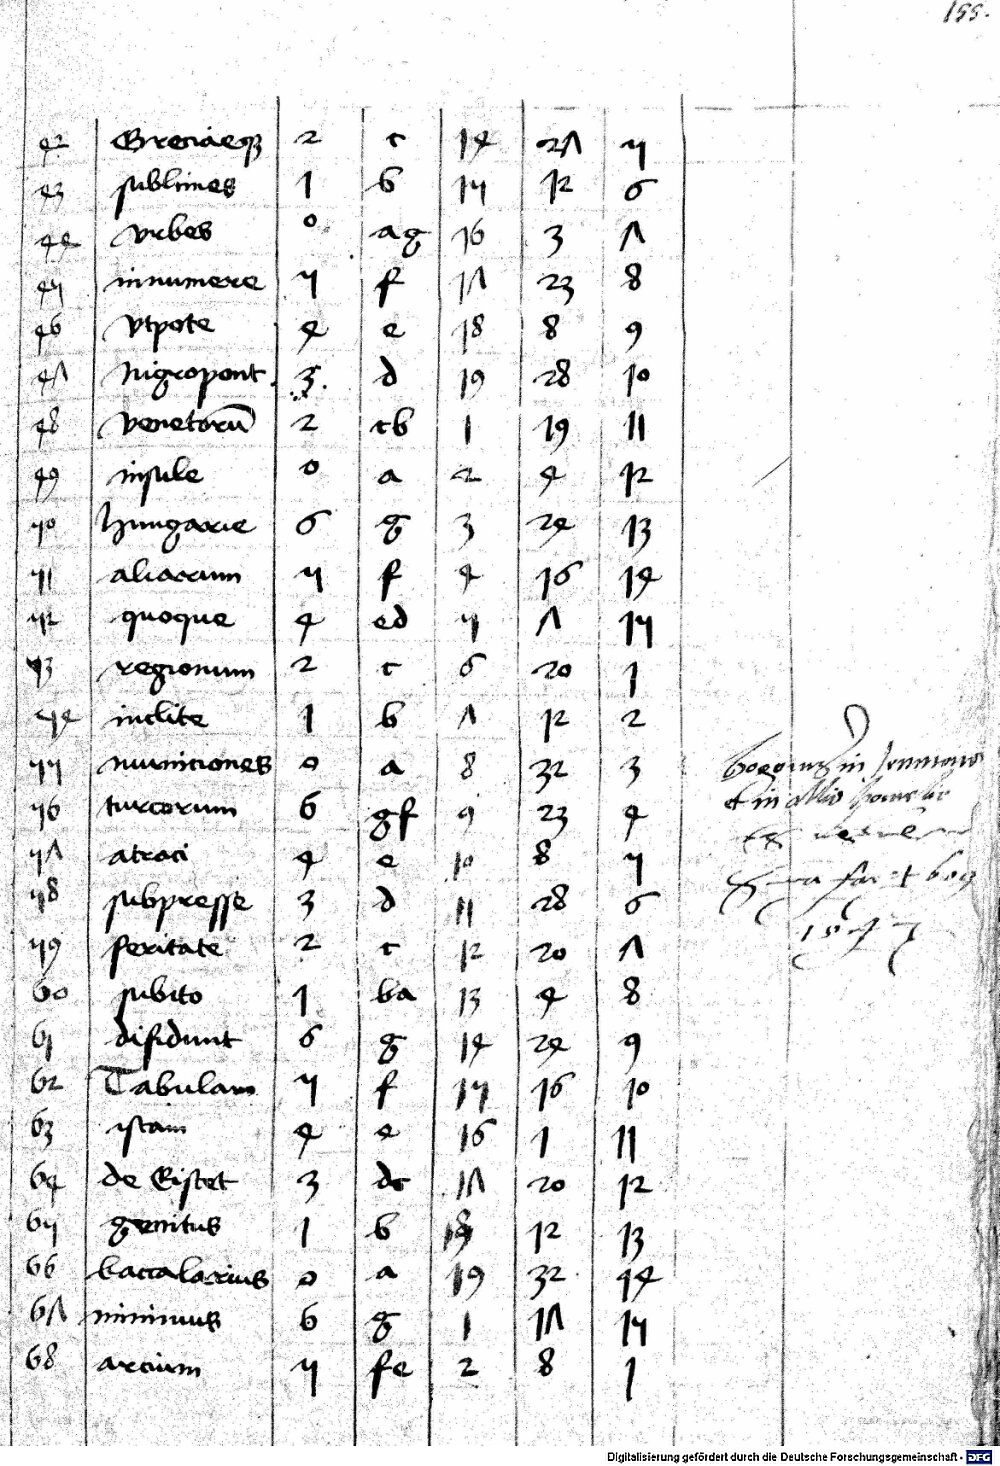 155.
42 Greciaeqȝ 2 c 14 27 5
43 sublimes 1 b 15 12 6
44 vrbes 0 ag 16 3 7
45 innumere 5 f 17 23 8
46 vtpote 4 e 18 8 9
47 Nigropont 3 d 19 28 10
48 venetorū 2 cb 1 19 11
49 insule 0 a 2 4 12
50 hungarie 6 g 3 24 13
51 aliarum 5 f 4 16 14
52 quoque 4 ed 5 7 15
53 regionum 2 c 6 20 1
54 inclite 1 b 7 12 2
55 municiones 0 a 8 32 3
56 turcorum 6 gf 9 23 4
57 atroci 4 e 10 8 5
58 subpresse 3 d 11 28 6
59 feritate 2 c 12 20 7
60 subito 1 ba 13 4 8
61 difidunt 6 g 14 24 9
62 Tabulam 5 f 15 16 10
63 istam 4 e 16 1 11
64 de Eistet 3 dc 17 20 12
65 genitus 1 b 18 12 13
66 baccalarius 0 a 19 32 14
67 minimus 6 g 1 17 15
68 arcium 5 fe 2 8 1
et in
Digitalisierung gefördert durch die Deutsche Forschungsgemeinschaft - DFG